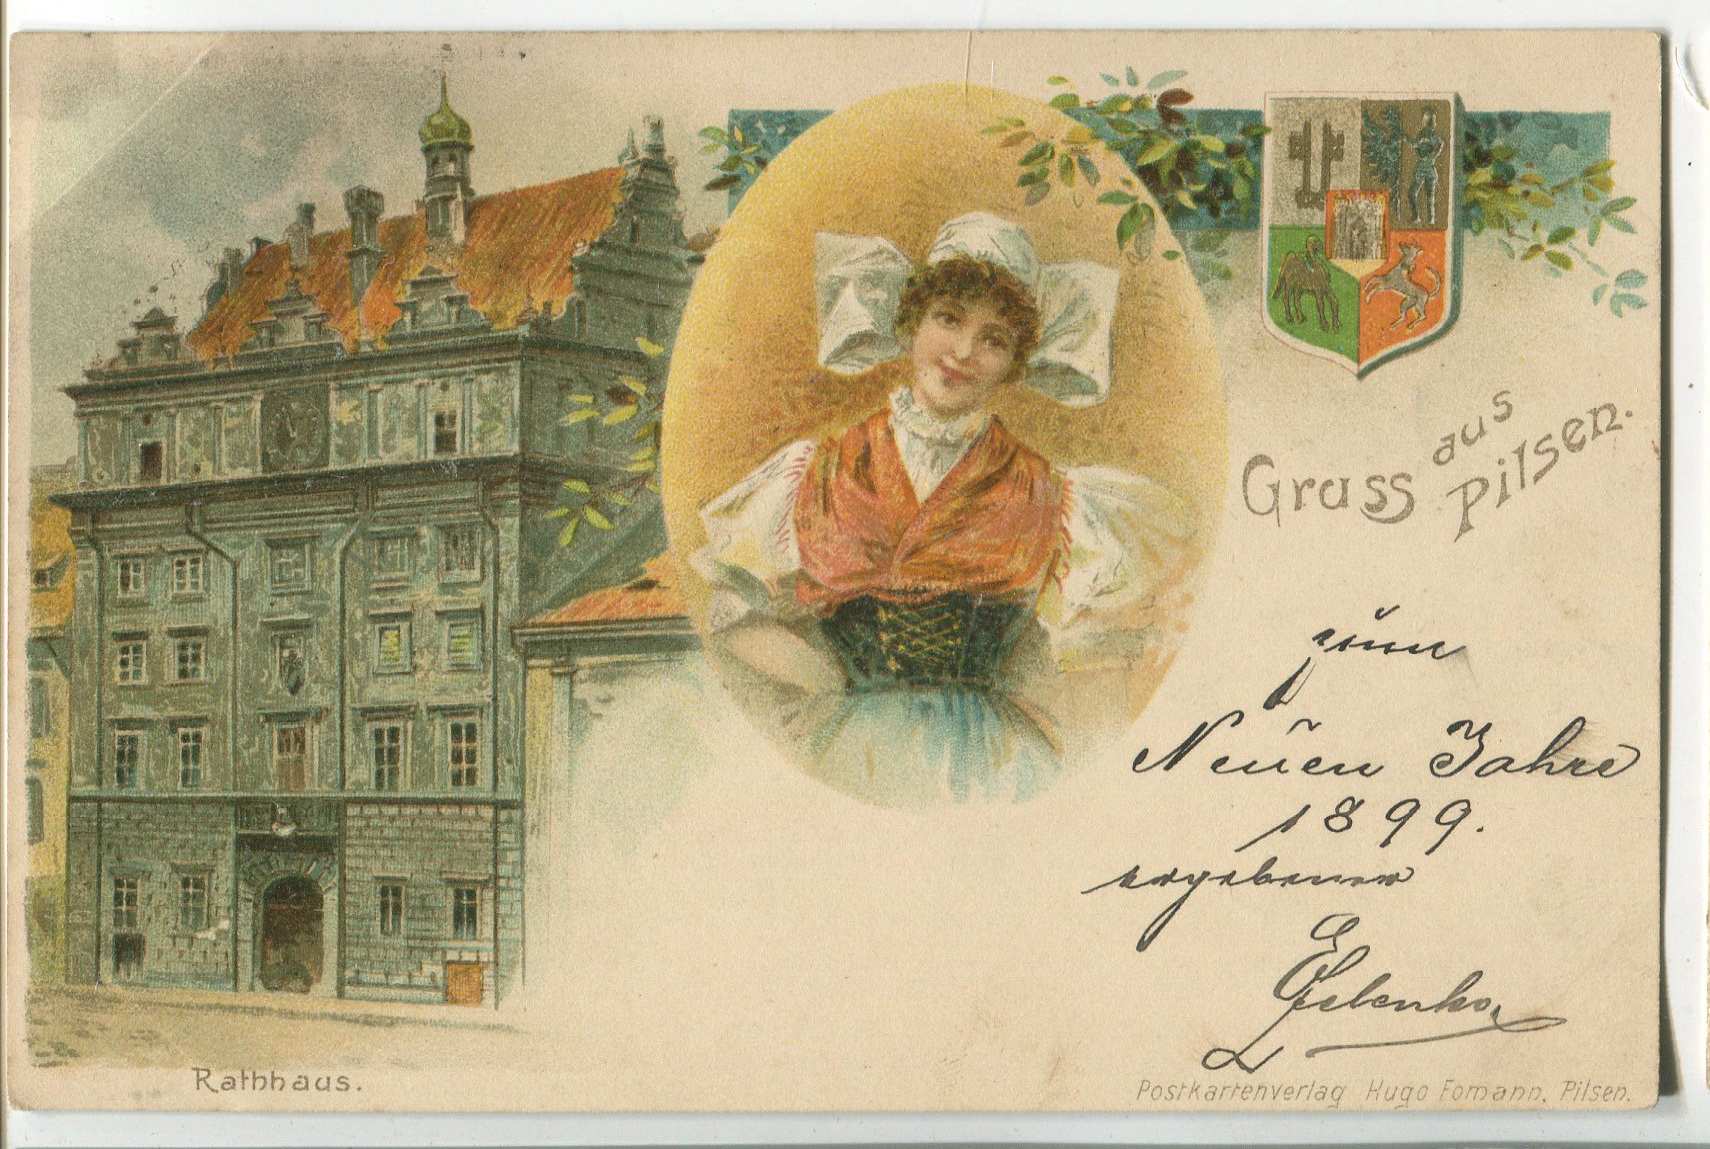 Gruss aus
Pilsen.
zum
Neuen Jahre
1899.
ergebener
Rathhaus.
Postkartenverlag Hugo Fomann, Pilsen.